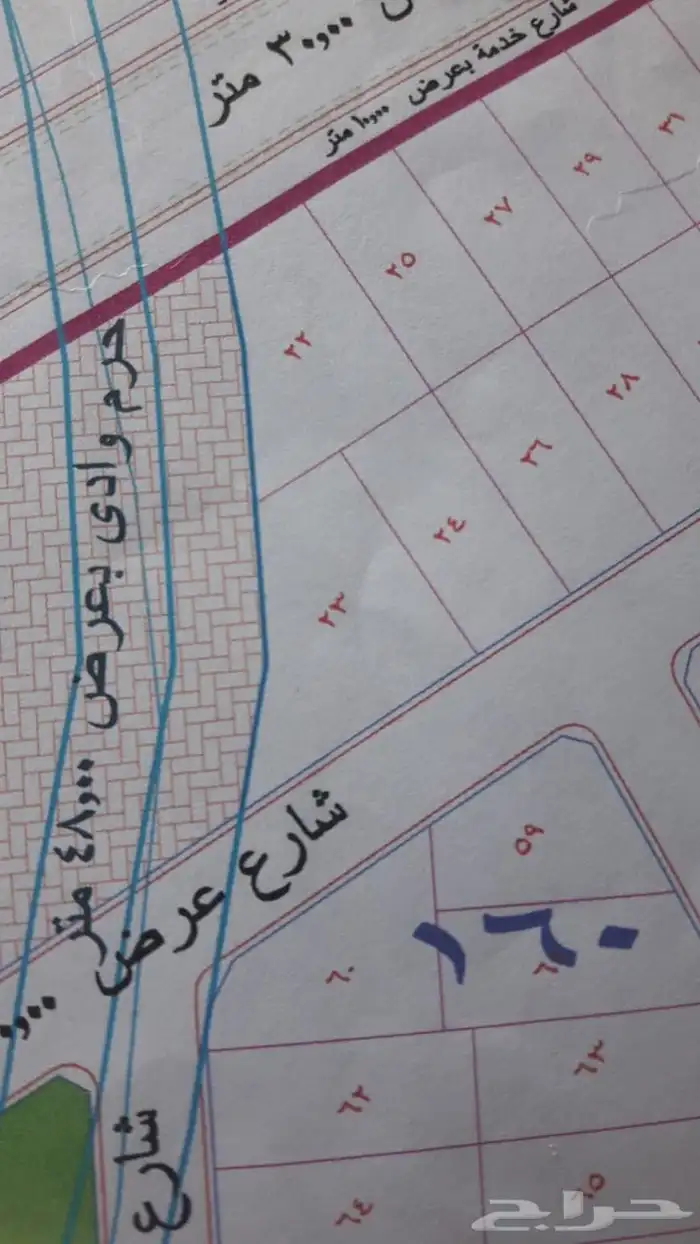 ٣٠,٠٠ متر
شارع خدمة بعرض ١٠,٠٠ متر
٣١
٢٩
٢٧
٢٥
٢٢
٢٨
٢٦
٢٤
٢٣
حرم وادى بعرض ٤٨,٠٠ متر
شارع عرض
٥٩
١٦٠
٦٠
٦٣
٦٢
٦٥
٦٤
شارع
حراج